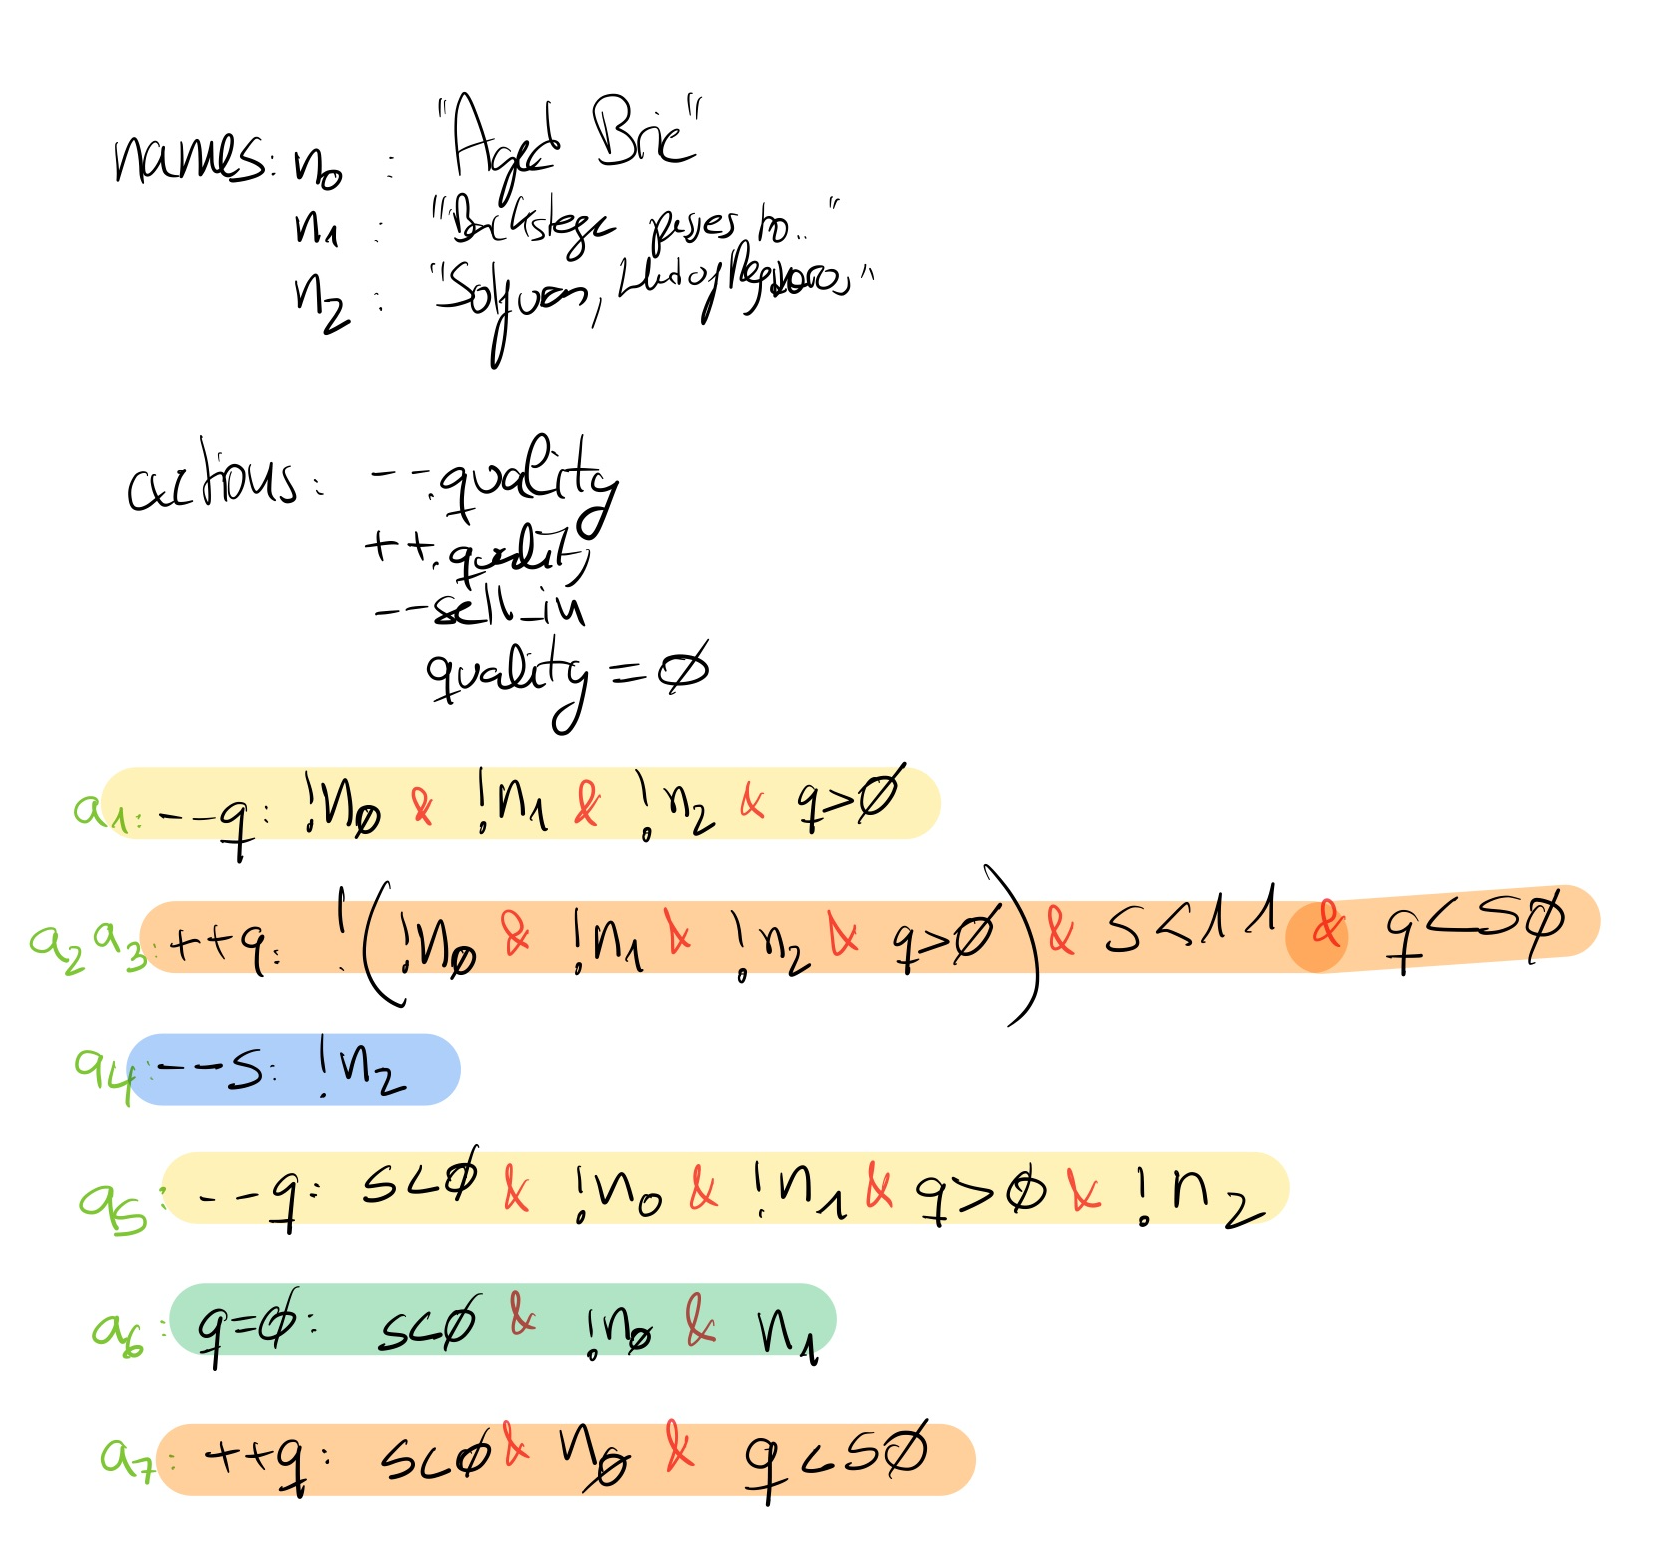 names: n0 : "Aged Brie"
n1 : "Backstage passes to.."
n2 : "Sulfuras, Hand of Ragnaros,"
actions: --.quality
++.quality
--sell_in
quality = Ø
a1: --q: !nØ & !n1 & !n2 & q>Ø
a2 a3: ++q: !(!nØ & !n1 & !n2 & q>Ø) & s<11 & q<5Ø
a4: --s: !n2
a5: --q: s<Ø & !n0 & !n1 & q>Ø & !n2
a6: q=Ø: s<Ø & !nØ & n1
a7: ++q: s<Ø & nØ & q<5Ø